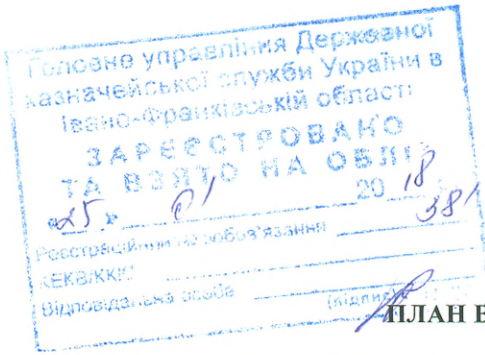 Головне управління Державної
казначейської служби України в
Івано-Франківській області
ЗАРЕЄСТРОВАНО
ТА ВЗЯТО НА ОБЛІК
«25» 01 2018
381
Реєстраційний № зобов'язання
КЕКВ/ККК
Відповідальна особа
(підпис)
ПЛАН В